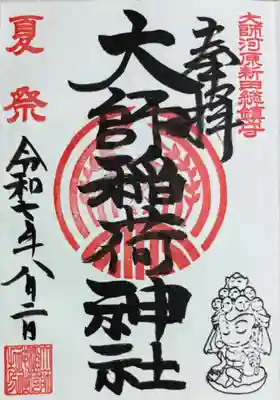 大師河原新田総鎮守
奉拝
大師稲荷神社
夏祭
令和七年八月二日